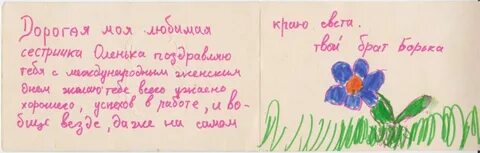 Дорогая моя любимая
сестричка Оленька поздравляю
тебя с международным женским
днем желаю тебе всего ужасно
хорошего, успехов в работе, и во-
обще везде, даже на самом
краю света.
твой брат Борька